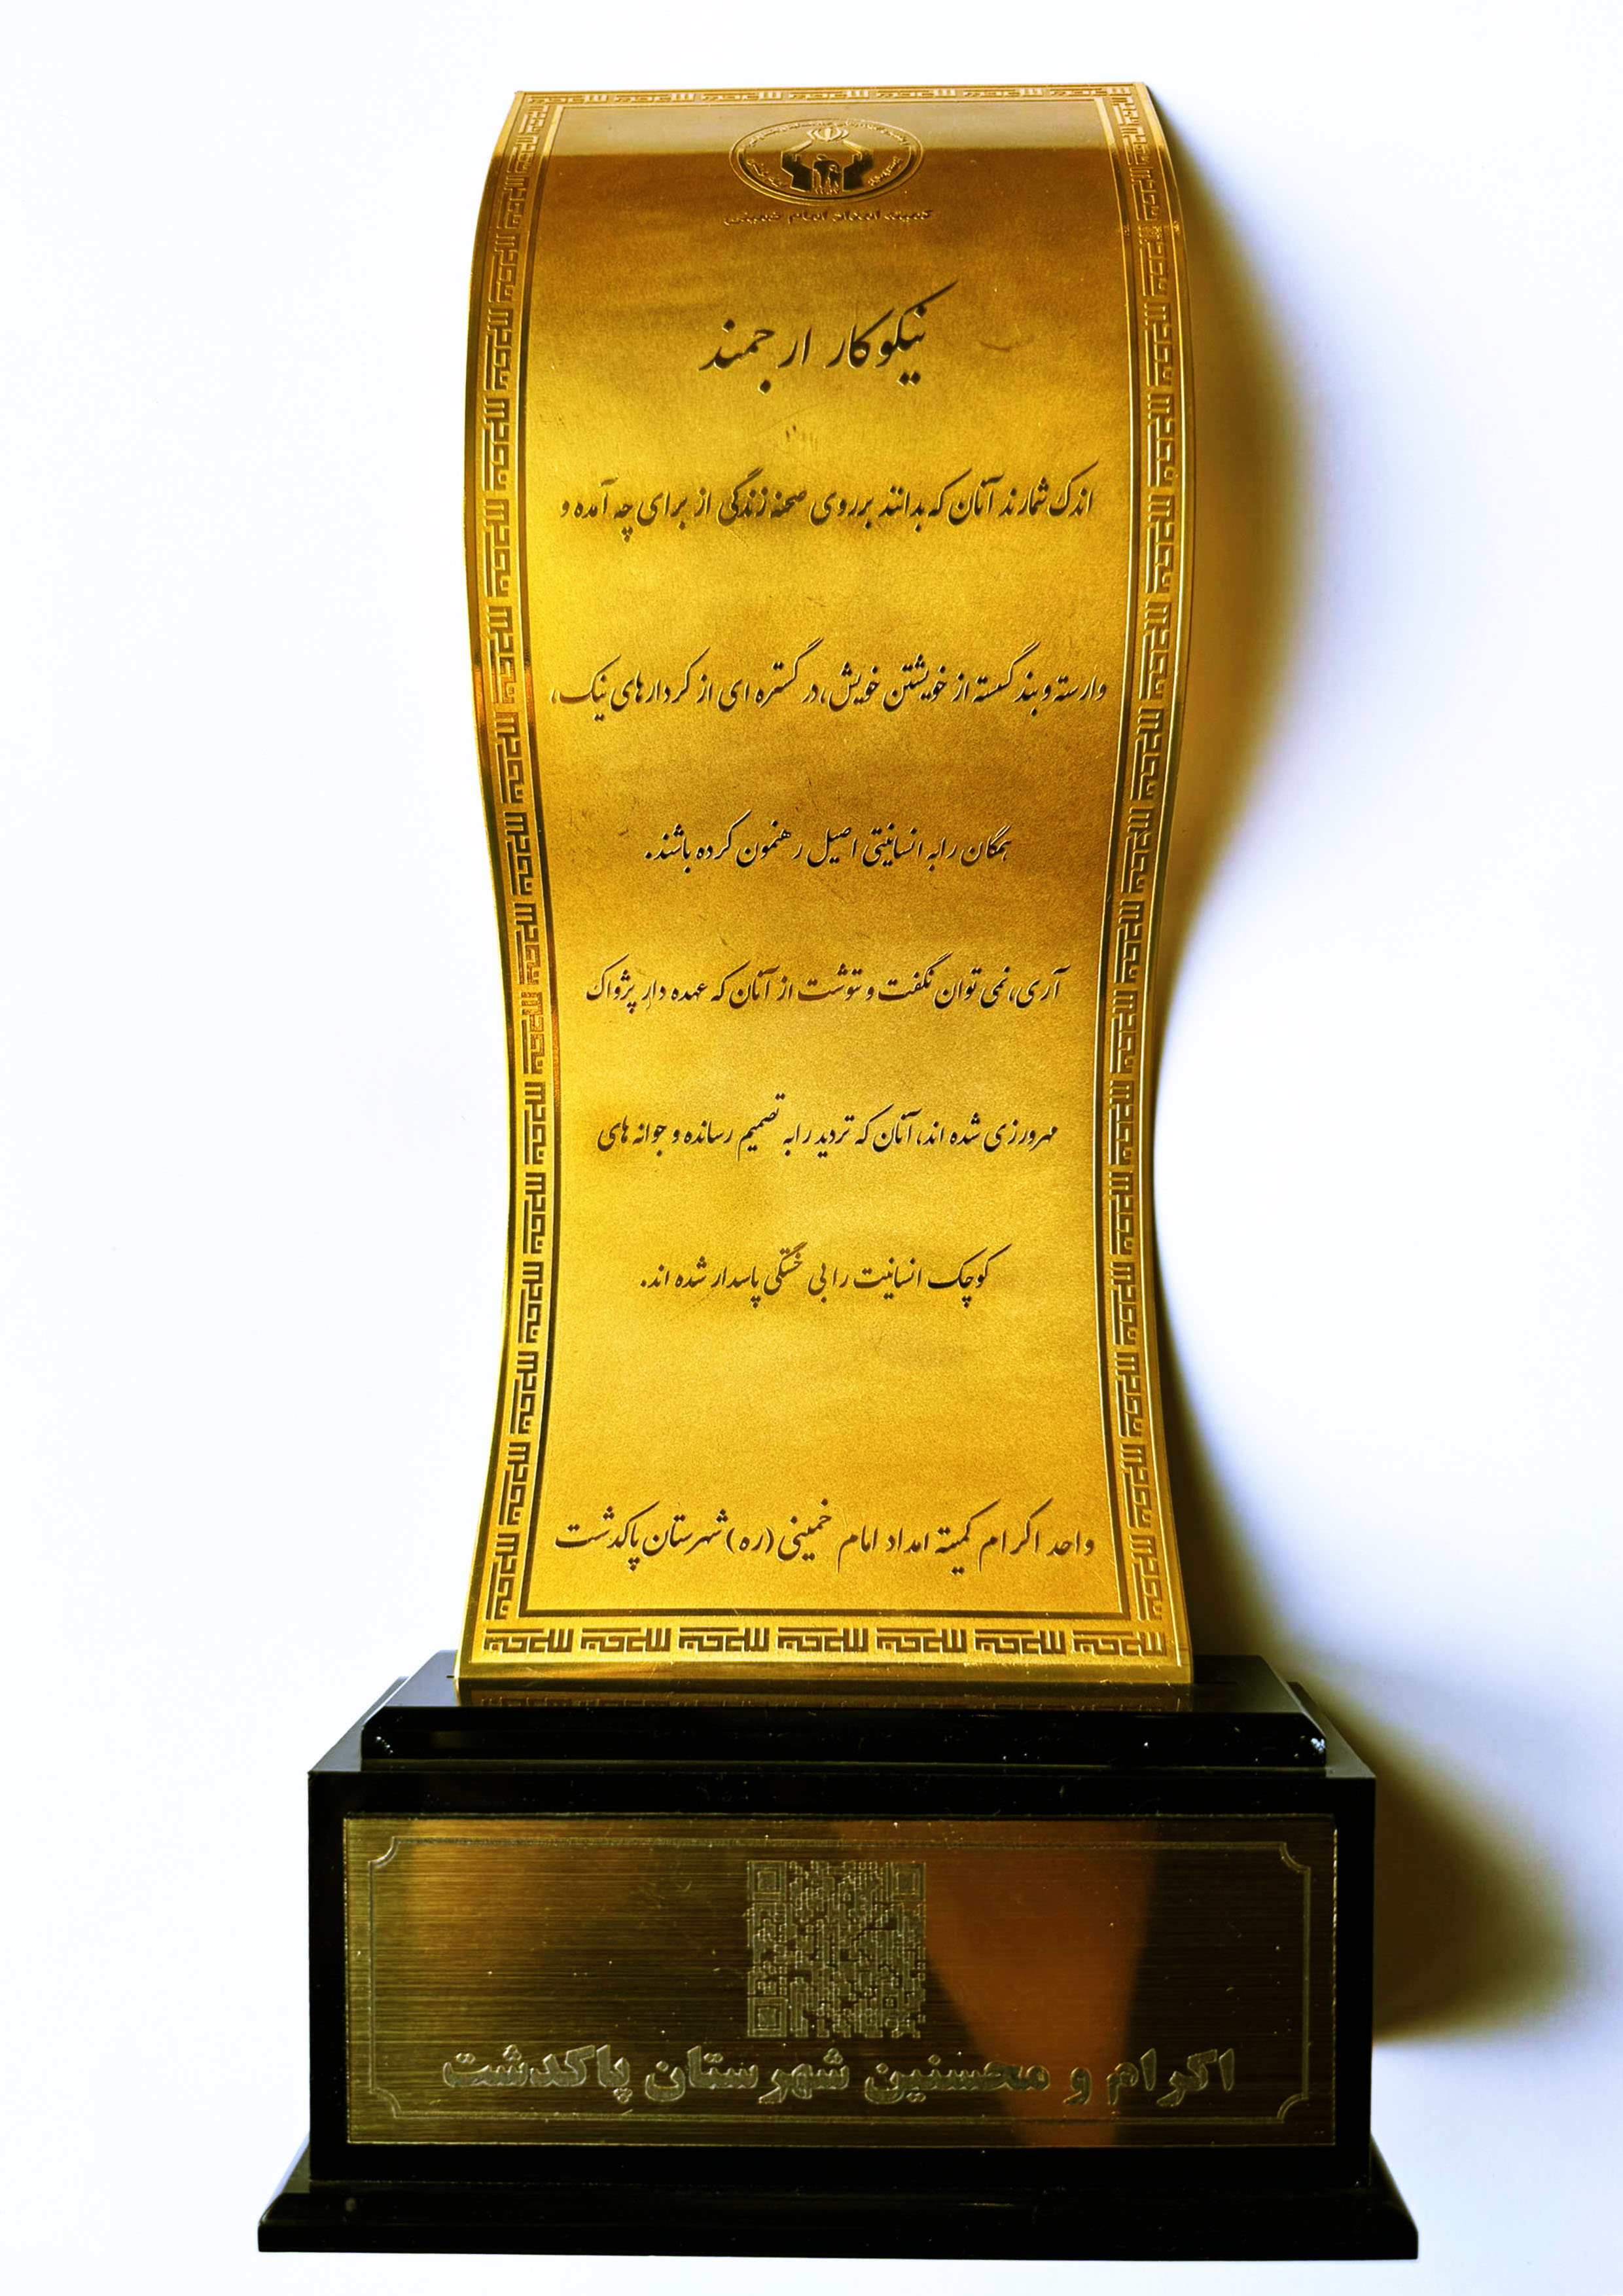 کمیته امداد امام خمینی
نیکوکار ارجمند
اندک شمارند آنان که بدانند بر روی صحنه زندگی از برای چه آمده و
وارسته و بند گسسته از خویشتن خویش، در گستره ای از کردارهای نیک،
همگان را به انسانیتی اصیل رهنمون کرده باشند.
آری، نمی توان نگفت و ننوشت از آنان که عهده دار پژواک
مهرورزی شده اند، آنان که تردید را به تصمیم رسانده و جوانه های
کوچک انسانیت را بی خستگی پاسدار شده اند.
واحد اکرام کمیته امداد امام خمینی (ره) شهرستان پاکدشت
اکرام و محسنین شهرستان پاکدشت